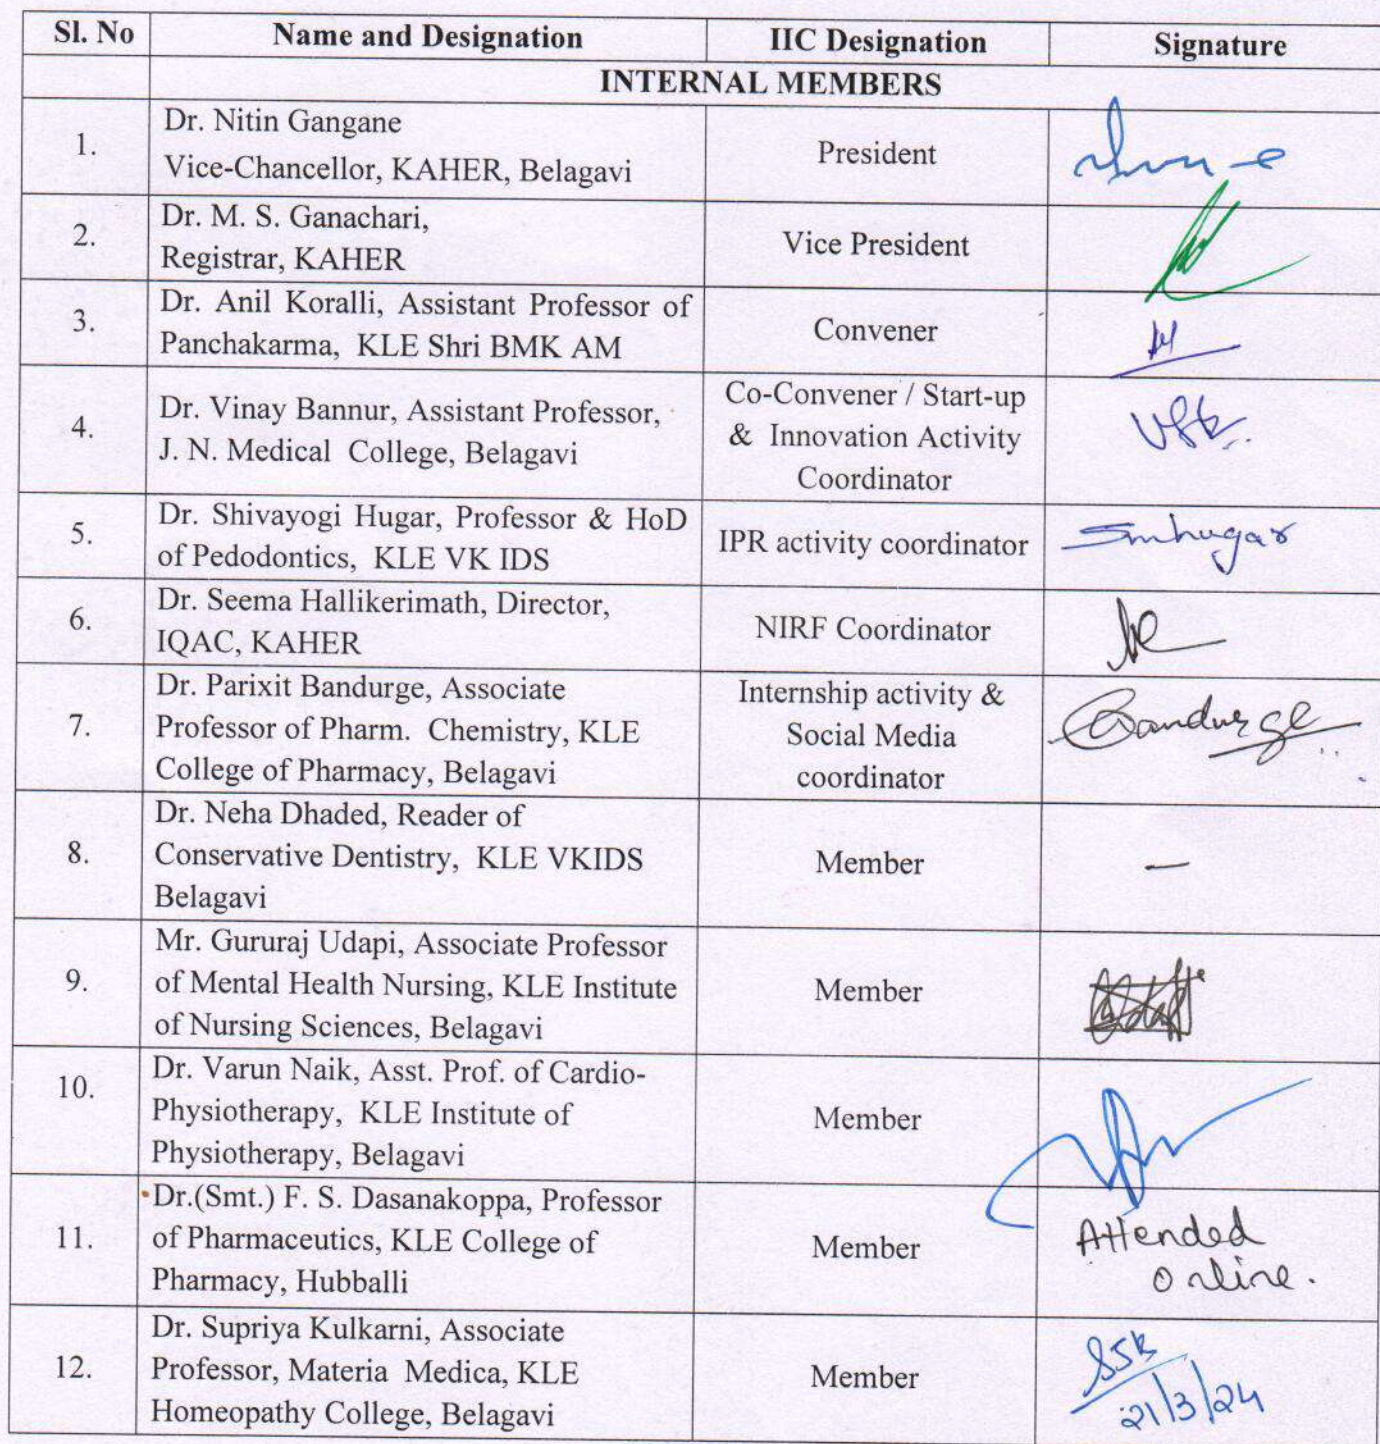 Sl. No Name and Designation IIC Designation Signature
INTERNAL MEMBERS
1. Dr. Nitin Gangane
Vice-Chancellor, KAHER, Belagavi
President
2. Dr. M. S. Ganachari,
Registrar, KAHER
Vice President
3. Dr. Anil Koralli, Assistant Professor of
Panchakarma, KLE Shri BMK AM
Convener
4. Dr. Vinay Bannur, Assistant Professor,
J. N. Medical College, Belagavi
Co-Convener / Start-up
& Innovation Activity
Coordinator
5. Dr. Shivayogi Hugar, Professor & HoD
of Pedodontics, KLE VK IDS
IPR activity coordinator
Smhugar
6. Dr. Seema Hallikerimath, Director,
IQAC, KAHER
NIRF Coordinator
7. Dr. Parixit Bandurge, Associate
Professor of Pharm. Chemistry, KLE
College of Pharmacy, Belagavi
Internship activity &
Social Media
coordinator
Bandurge
8. Dr. Neha Dhaded, Reader of
Conservative Dentistry, KLE VKIDS
Belagavi
Member
—
9. Mr. Gururaj Udapi, Associate Professor
of Mental Health Nursing, KLE Institute
of Nursing Sciences, Belagavi
Member
10. Dr. Varun Naik, Asst. Prof. of Cardio-
Physiotherapy, KLE Institute of
Physiotherapy, Belagavi
Member
11. Dr.(Smt.) F. S. Dasanakoppa, Professor
of Pharmaceutics, KLE College of
Pharmacy, Hubballi
Member
Attended
online.
12. Dr. Supriya Kulkarni, Associate
Professor, Materia Medica, KLE
Homeopathy College, Belagavi
Member
SSK
21/3/24